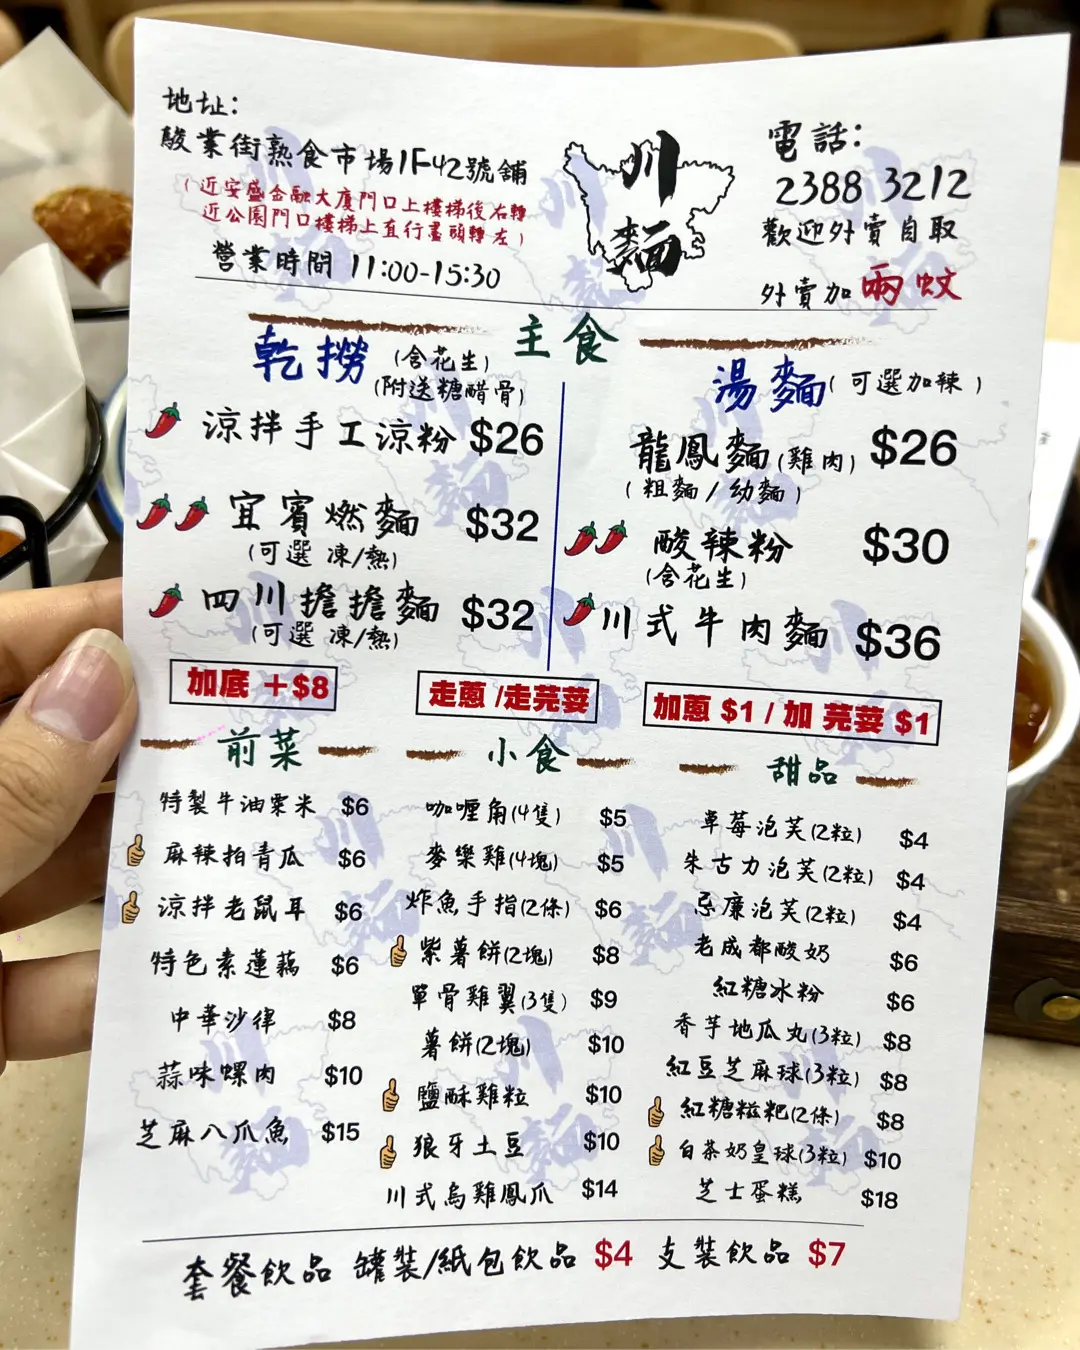 地址：
駿業街熟食市場1F42號舖
（近安盛金融大廈門口上樓梯後右轉
近公園門口樓梯上直行盡頭轉左）
營業時間 11:00-15:30
川
麵
電話：
2388 3212
歡迎外賣自取
外賣加兩蚊
主食
乾撈（含花生）
（附送糖醋骨）
涼拌手工涼粉 $26
宜賓燃麵 $32
（可選 凍/熱）
四川擔擔麵 $32
（可選 凍/熱）
湯麵（可選加辣）
龍鳳麵（雞肉） $26
（粗麵/幼麵）
酸辣粉 $30
（含花生）
川式牛肉麵 $36
加底 +$8
走蔥 /走芫荽
加蔥 $1 / 加 芫荽 $1
前菜
特製牛油粟米 $6
麻辣拍青瓜 $6
涼拌老鼠耳 $6
特色素蓮藕 $6
中華沙律 $8
蒜味螺肉 $10
芝麻八爪魚 $15
小食
咖喱角(4隻) $5
麥樂雞(4塊) $5
炸魚手指(2條) $6
紫薯餅(2塊) $8
單骨雞翼(3隻) $9
薯餅(2塊) $10
鹽酥雞粒 $10
狼牙土豆 $10
川式烏雞鳳爪 $14
甜品
草莓泡芙(2粒) $4
朱古力泡芙(2粒) $4
忌廉泡芙(2粒) $4
老成都酸奶 $6
紅糖冰粉 $6
香芋地瓜丸(3粒) $8
紅豆芝麻球(3粒) $8
紅糖糍粑(2條) $8
白茶奶皇球(3粒) $10
芝士蛋糕 $18
套餐飲品 罐裝/紙包飲品 $4 支裝飲品 $7